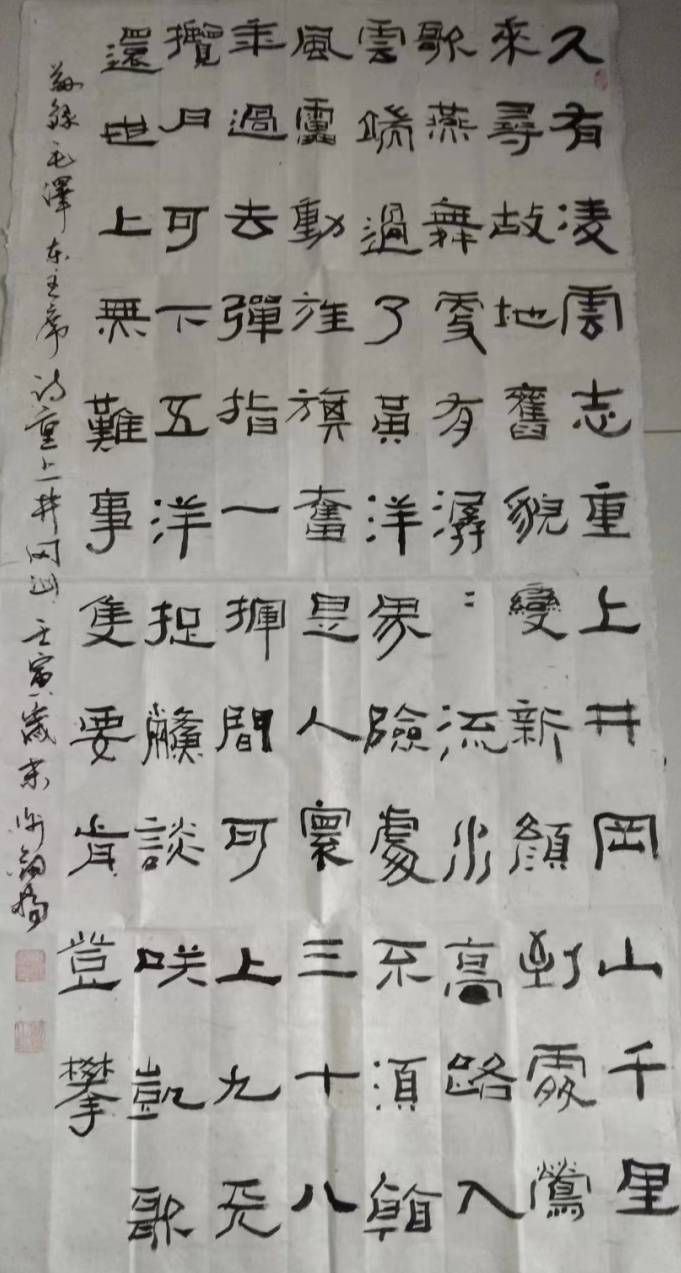 久有凌雲志重上井岡山千里
來尋故地舊貌變新顏到處鶯
歌燕舞處有潺：流水高路入
雲端過了黃洋界險處不須看
風雷動旌旗奮是人寰三十八
年過去彈指一揮間可上九天
攬月可下五洋捉鱉談咲凱歌
還世上無難事隻要肯登攀
錄毛澤东主席诗重上井冈山 壬寅歲末